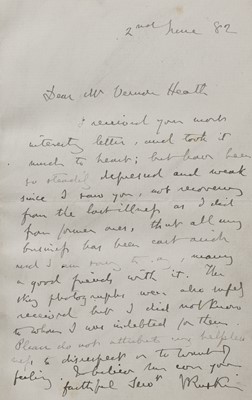 2nd June 82
Dear Mr Vernon Heath
I received your most
interesting letter, and took it
much to heart; but have been
so steadily depressed and weak
since I saw you, not recovering
from the last illness as I did
from former ones, that all my
business has been cast aside
and I am many
a good friends with it. The
sky photographs were also safely
received but I did not know
to whom I was indebted for them.
Please do not attribute my helpless
ness to disrespect or to want of
feeling & believe me ever your
faithful Servt JRuskin